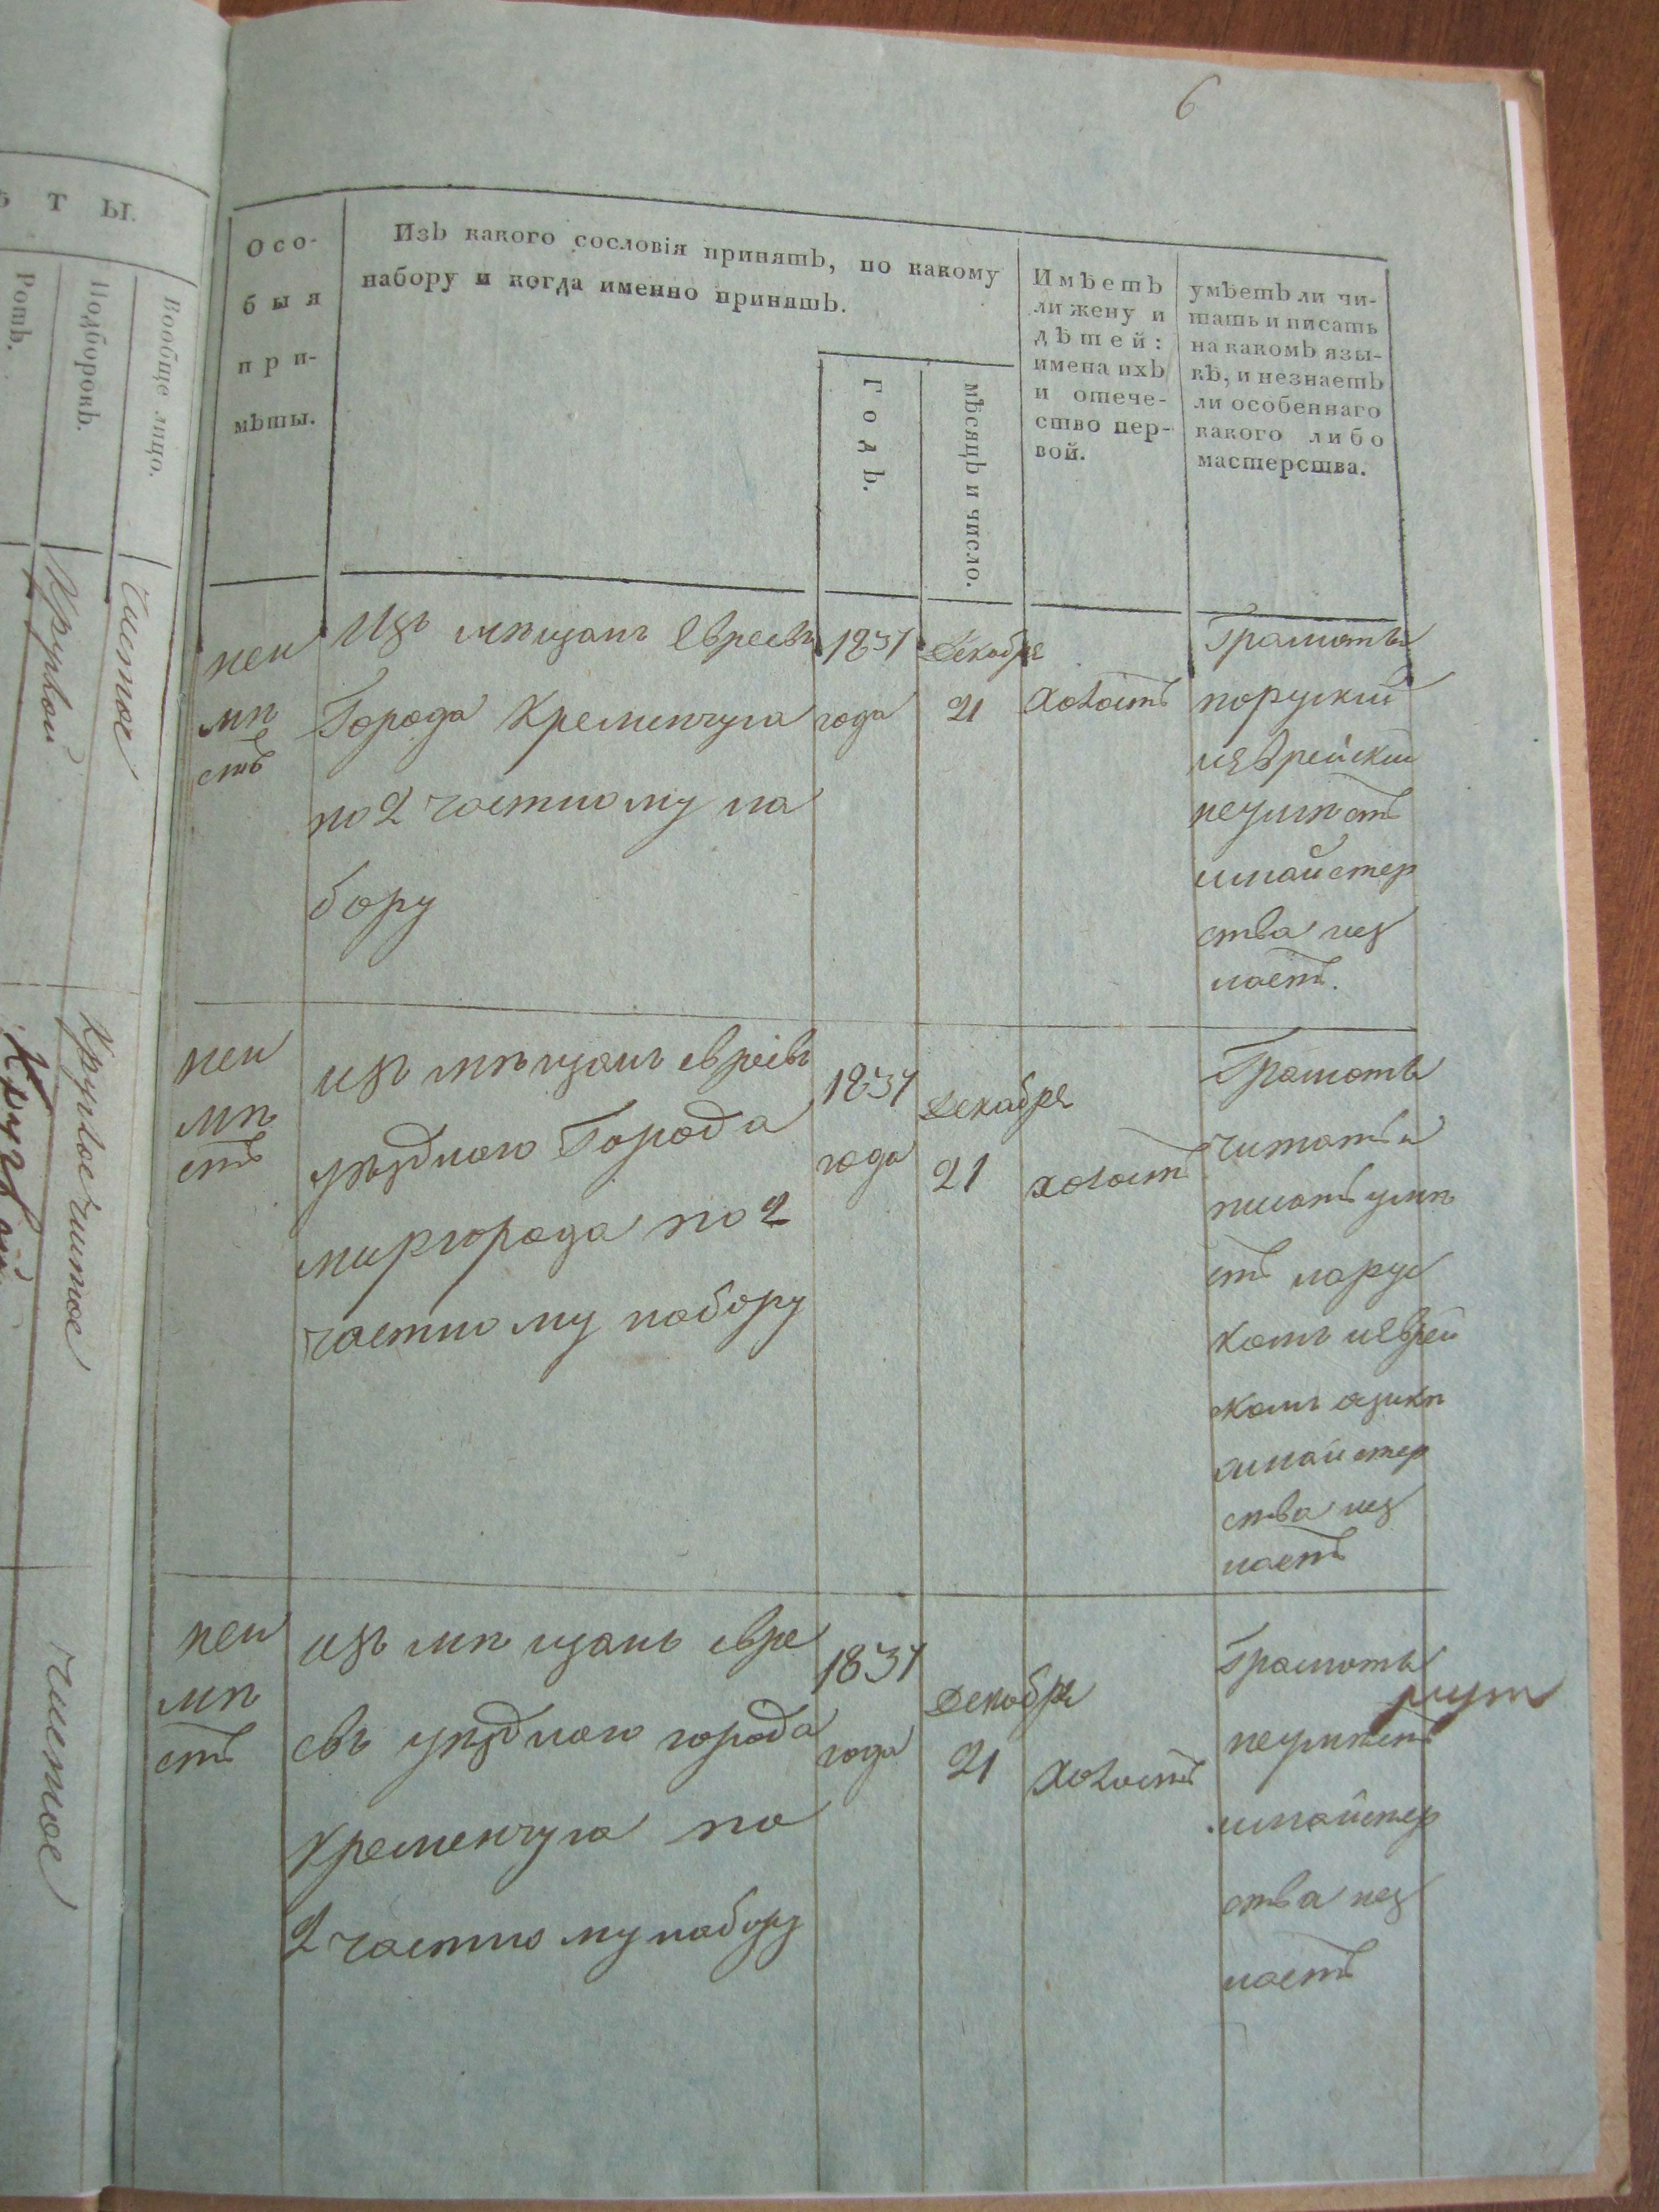 6
ѣ т ы.
Вообще лицо.
Подборокъ.
Ротъ.
Чистое
Круглой
Круглое чистое
Круглой
чистое
Осо-
быя
при-
мѣты.
Изъ какого сословія принятъ, по какому
набору и когда именно принятъ.
Годъ.
мѣсяцъ и число.
Имѣетъ
ли жену и
дѣтей:
имена ихъ
и отече-
ство пер-
вой.
умѣетъ ли чи-
тать и писать
на какомъ язы-
кѣ, и незнаетъ
ли особеннаго
какого либо
мастерства.
неи
мѣ
етъ
Изъ мѣщанъ Евреевъ
Города Кременчуга
по 2 частному на
бору
1837
года
Декабря
21
холостъ
Грамоты
поруский
иеврейски
неумѣетъ
имайстер
ства нез
наетъ.
неи
мѣ
етъ
изъ мѣщанъ евреевъ
уѣзднаго Города
миргорода по 2
частному набору
1837
года
Декабря
21
холостъ
Грамотѣ
читать и
писать умѣ
етъ нарус
комъ иеврей
скомъ язикѣ
имайстер
ства нез
наетъ
неи
мѣ
етъ
изъ мѣщанъ евре
евъ уѣзднаго города
кременчуга по
2 частному набору
1837
года
Декабря
21
холостъ
Грамоты
неумѣетъ
имайстер
ства нез
наетъ